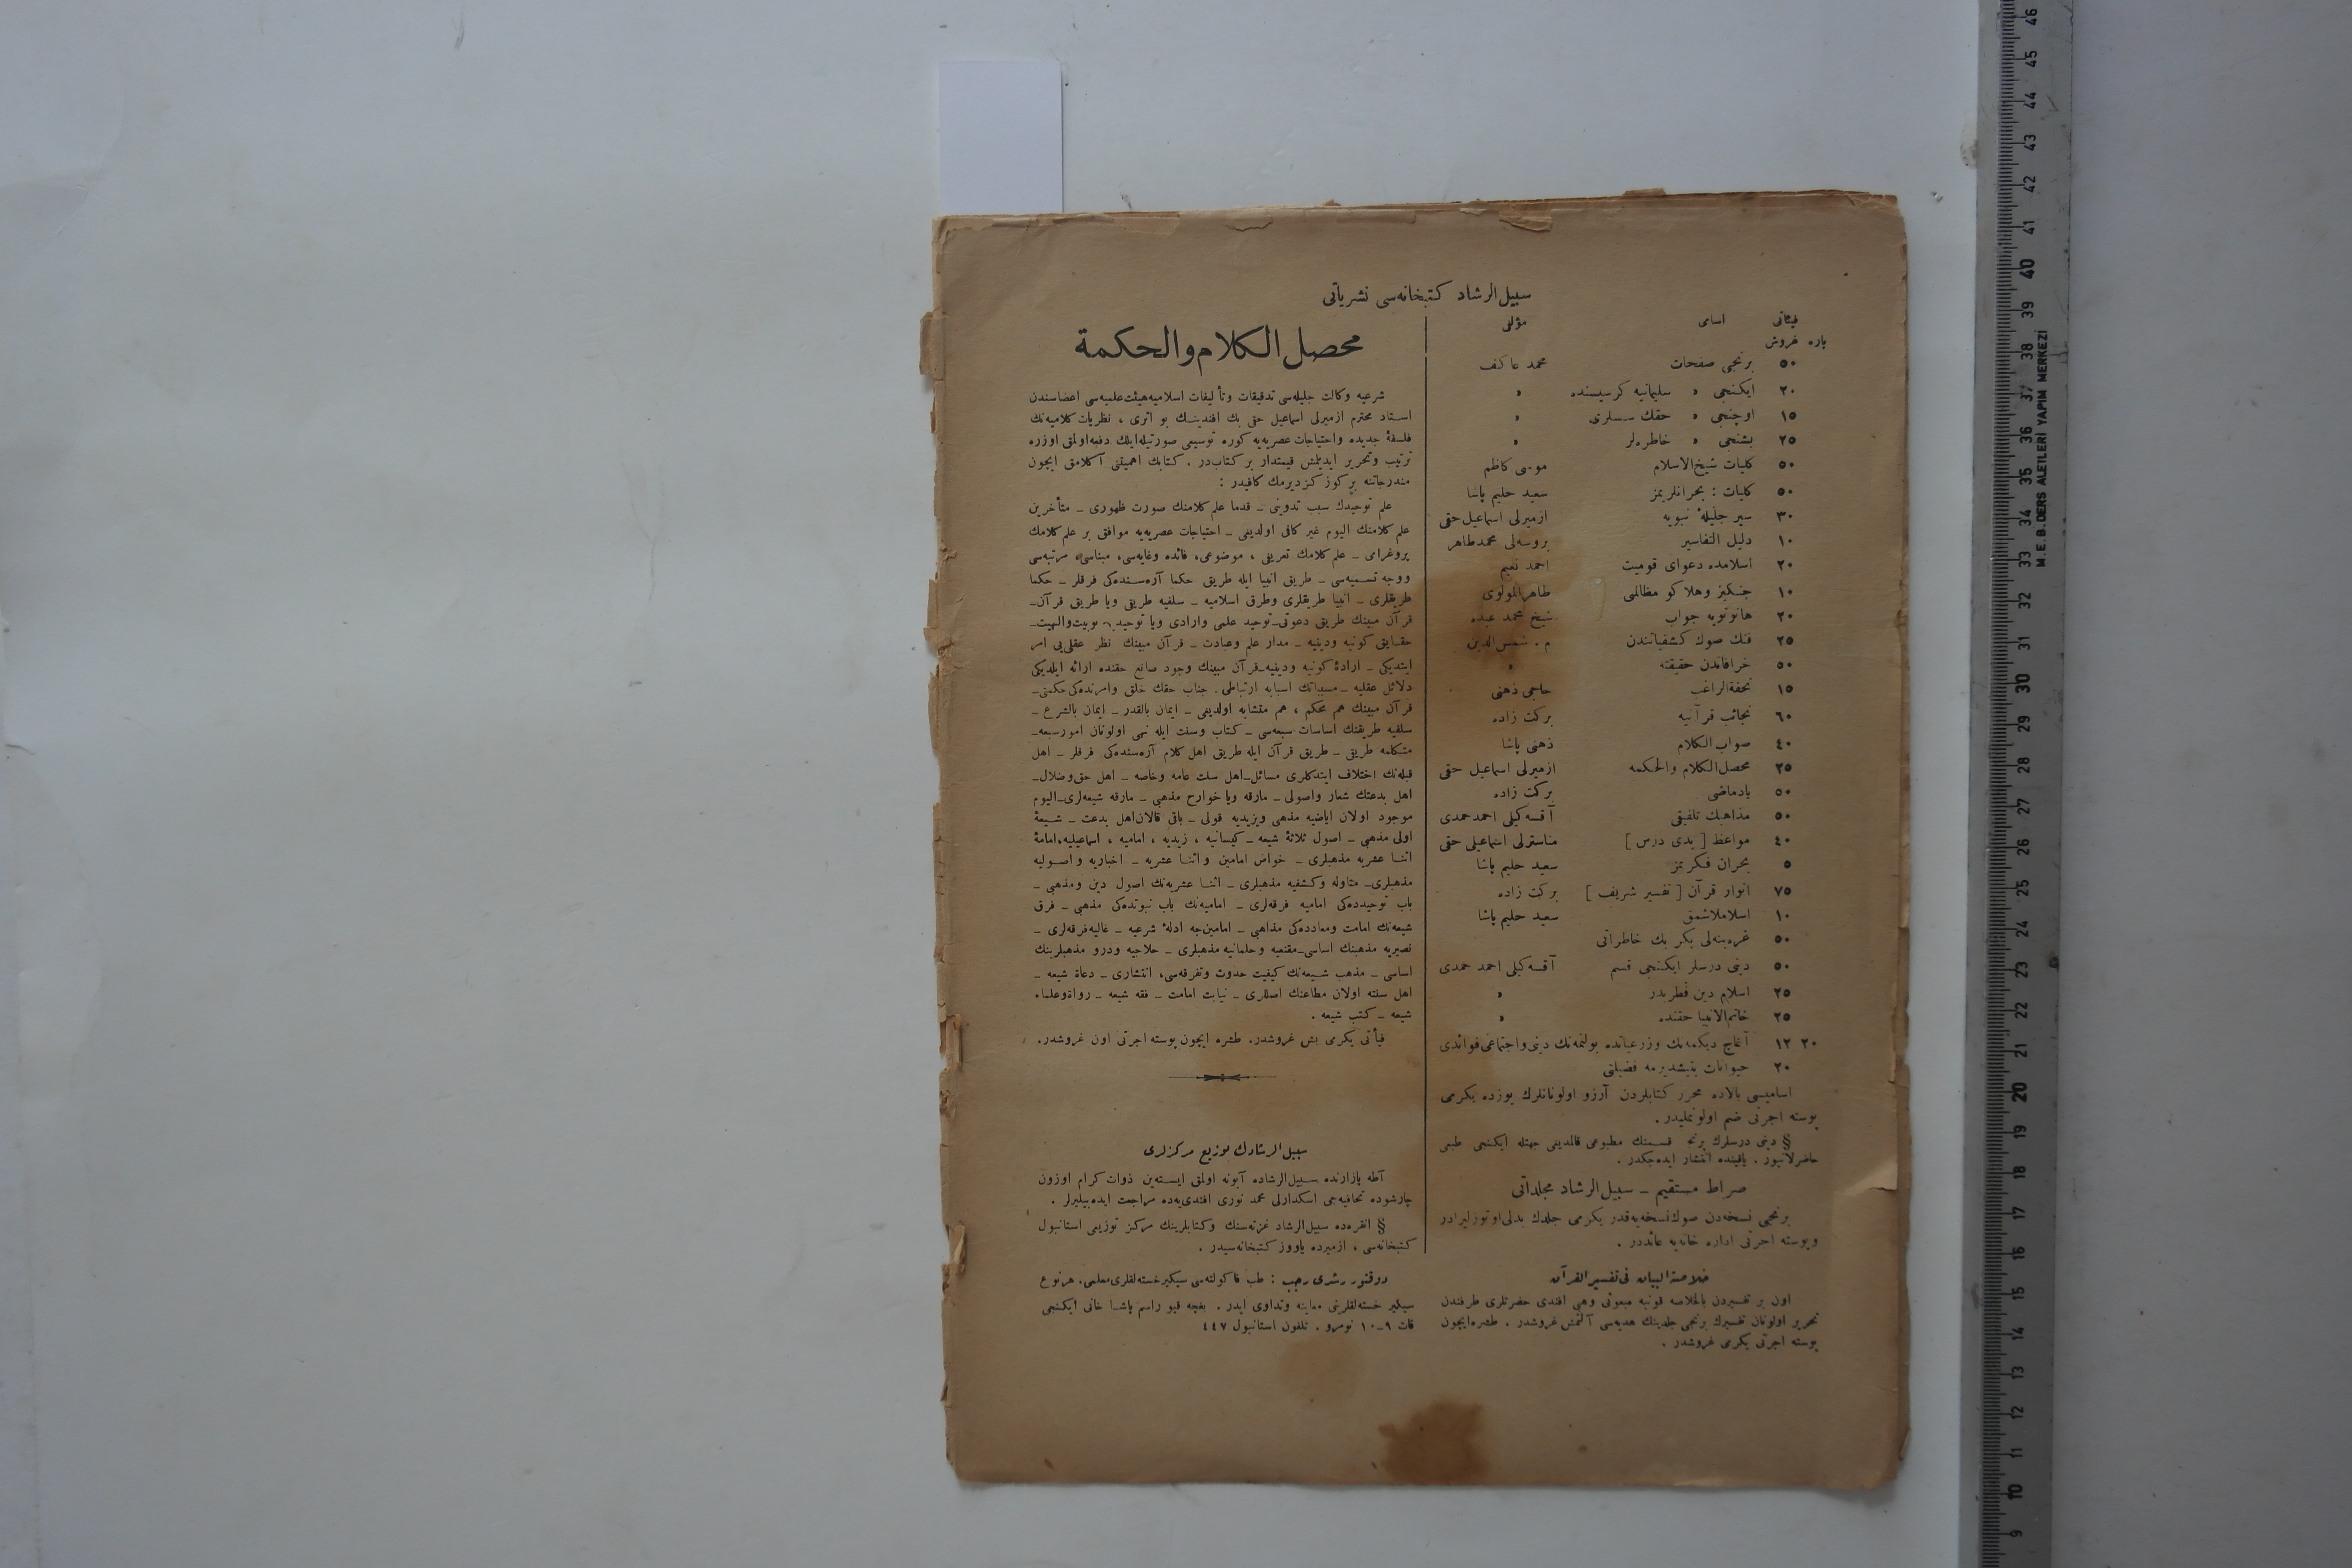 سبیل‌الرشاد کتبخانه‌سی نشریاتی
فیئاتی اسامی مؤلفی
پاره غروش
٥٠ برنجی صفحات محمد عاکف
٢٠ ایکنجی » سلیمانیه کرسیسنده »
١٥ اوچنجی » حقك سسلری »
٢٥ بشنجی » خاطره‌لر »
٥٠ کلیات شیخ‌الاسلام موسی کاظم
٥٠ کلیات : بحرانلریمز سعید حلیم پاشا
٣٠ سیر جلیلهٔ نبویه ازمیرلی اسماعیل حقی
١٠ دلیل التفاسیر بروسه‌لی محمد طاهر
٢٠ اسلامده دعوای قومیت احمد نعیم
١٠ جنکیز وهلاکو مظالمی طاهرالمولوی
٢٠ هانوتویه جواب شیخ محمد عبده
٢٥ فنك صوك کشفیاتندن م . شمس‌الدین
٥٠ خرافاتدن حقیقته »
١٥ تحفةالراغب حاجی ذهنی
٦٠ نجائب قرآنیه برکت زاده
٤٠ صواب الکلام ذهنی پاشا
٢٥ محصل‌الکلام والحکمه ازمیرلی اسماعیل حقی
٥٠ یادماضی برکت زاده
٥٠ مذاهبك تلفیقی آقسه‌کیلی احمد حمدی
٤٠ مواعظ [ یدی درس ] مناسترلی اسماعیل حقی
٥ بحران فکریمز سعید حلیم پاشا
٧٥ انوار قرآن [ تفسیر شریف ] برکت زاده
١٠ اسلاملاشمق سعید حلیم پاشا
٥٠ غره‌بنه‌لی بکر بك خاطراتی
٥٠ دینی درسلر ایکنجی قسم آقسه‌کیلی احمد حمدی
٢٥ اسلام دین فطریدر »
٢٥ خاتم‌الانبیا حقنده »
٢٠ ١٢ آغاج دیکمه‌نك وزرعیاتده بولنمه‌نك دینی واجتماعی فوائدی
٢٠ حیوانات یتیشدیرمه فضیلتی
اسامیسی بالاده محرر کتابلردن آرزو اولونانلرك یوزده یکرمی
پوسته اجرتی ضم اولونملیدر .
§ دینی درسلرك برنجی قسمنك مطبوعی قالمدیغی جهتله ایکنجی طبعی
حاضرلانیور . یاقینده انتشار ایده‌جکدر .
صراط مستقیم ــ سبیل‌الرشاد مجلداتی
برنجی نسخه‌دن صوك نسخه‌یه‌قدر یکرمی جلدك بدلی اوتوز لیرادر
وپوسته اجرتی اداره خانه‌یه عائددر .
خلاصة‌البیان فی تفسیر القرآن
اون بر تفسیردن بالخلاصه قونیه مبعوثی وهبی افندی حضرتلری طرفندن
تحریر اولونان تفسیرك برنجی جلدینك هدیه‌سی آلتمش غروشدر . طشره‌ایچون
پوسته اجرتی یکرمی غروشدر .
محصل الکلام والحکمة
شرعیه وکالت جلیله‌سی تدقیقات وتألیفات اسلامیه هیئت علمیه‌سی اعضاسندن
استاد محترم ازمیرلی اسماعیل حقی بك افندینك بو اثری ، نظریات کلامیه‌نك
فلسفهٔ جدیده واحتیاجات عصریه‌یه کوره توسیعی صورتیله‌ایلك دفعه‌اولمق اوزره
ترتیب وتحریر ایدیلمش قیمتدار بر کتاب‌در . کتابك اهمیتنی آکلامق ایچون
مندرجاتنه بر کوز کزدیرمك کافیدر :
علم توحیدك سبب تدوینی ــ قدما علم کلامنك صورت ظهوری ــ متأخرین
علم کلامنك الیوم غیر کافی اولدیغی ــ احتیاجات عصریه‌یه موافق بر علم کلامك
پروغرامی ــ علم کلامك تعریفی ، موضوعی، فائده وغایه‌سی، مبناسی، مرتبه‌سی
ووجه تسمیه‌سی ــ طریق انبیا ایله طریق حکما آره‌سنده‌کی فرقلر ــ حکما
طریقلری ــ انبیا طریقلری وطرق اسلامیه ــ سلفیه طریق ویا طریق قرآن ــ
قرآن مبینك طریق دعوتی ــ توحید علمی وارادی ویا توحید ربوبیت والهیت ــ
حقایق کونیه ودینیه ــ مدار علم وعبادت ــ قرآن مبینك نظر عقلی‌یی امر
ایتدیکی ــ ارادهٔ کونیه ودینیه ــ قرآن مبینك وجود صانع حقنده ارائه ایلدیکی
دلائل عقلیه ــ مسبباتك اسبابه ارتباطی . جناب حقك خلق وامرنده‌کی حکمتی ــ
قرآن مبینك هم محکم ، هم متشابه اولدیغی ــ ایمان بالقدر ــ ایمان بالشرع ــ
سلفیه طریقنك اساسات سبعه‌سی ــ کتاب وسنت ایله نهی اولونان امور سبعه ــ
متکلمه طریقی ــ طریق قرآن ایله طریق اهل کلام آره‌سنده‌کی فرقلر ــ اهل
قبله‌نك اختلاف ایتدکلری مسائل ــ اهل سنت عامه وخاصه ــ اهل حق وضلال ــ
اهل بدعتك شعار واصولی ــ مارقه ویا خوارج مذهبی ــ مارقه شیعه‌لری ــ الیوم
موجود اولان اباضیه مذهبی ویزیدیه قولی ــ باقی قالان اهل بدعت ــ شیعهٔ
اولی مذهبی ــ اصول ثلاثهٔ شیعه ــ کیسانیه ، زیدیه ، امامیه ، اسماعیلیه، امامهٔ
اثنا عشریه مذهبلری ــ خواص امامین واثنا عشریه ــ اخباریه واصولیه
مذهبلری ــ متاوله وکشفیه مذهبلری ــ اثنا عشریه‌نك اصول دین ومذهبی ــ
باب توحیدده‌کی امامیه فرقه‌لری ــ امامیه‌نك باب نبوتده‌کی مذهبی ــ فرق
شیعه‌نك امامت ومعادده‌کی مذاهبی ــ امامین‌جه ادلهٔ شرعیه ــ غالیه فرقه‌لری ــ
نصیریه مذهبنك اساسی ــ مقنعیه وحلمانیه مذهبلری ــ حلاجیه ودرو مذهبلرینك
اساسی ــ مذهب شیعه‌نك کیفیت حدوث وتفرقه‌سی، انتشاری ــ دعاة شیعه ــ
اهل سنته اولان مطاعنك اصللری ــ نیابت امامت ــ فقه شیعه ــ رواة وعلماء
شیعه ــ کتب شیعه .
فیأتی یکرمی بش غروشدر. طشره ایچون پوسته اجرتی اون غروشدر.
سبیل‌الرشادك توزیع مرکزلری
آطه پازارنده سبیل‌الرشاده آبونه اولمق ایسته‌ین ذوات کرام اوزون
چارشوده تحافیه‌جی اسکدارلی محمد نوری افندی‌یه‌ده مراجعت ایده‌بیلیرلر .
§ انقره‌ده سبیل‌الرشاد غزته‌سنك وکتابلرینك مرکز توزیعی استانبول
کتبخانه‌سی ، ازمیرده یاووز کتبخانه‌سیدر .
دوقتور رشدی رجب : طب فاکولته‌سی سیکیر خسته‌لقلری معلمی. هر نوع
سیکیر خسته‌لقلرینی معاینه وتداوی ایدر . بغچه قپو راسم پاشا خانی ایکنجی
قات ٩ــ١٠ نومرو . تلفون استانبول ٤٤٧
M.E.B. DERS ALETLERİ YAPIM MERKEZİ
46
45
44
43
42
41
40
39
38
37
36
35
34
33
32
31
30
29
28
27
26
25
24
23
22
21
20
19
18
17
16
15
14
13
12
11
10
9